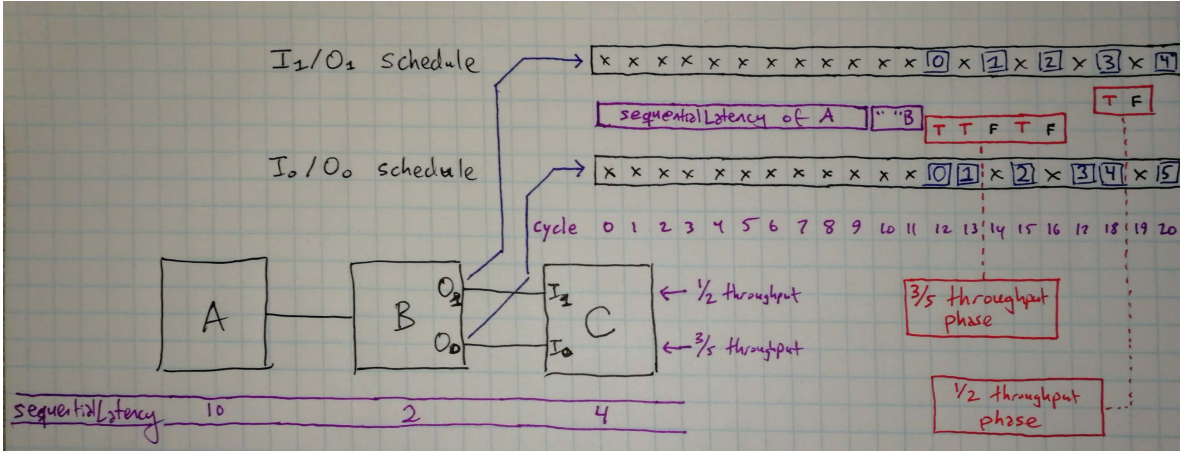 I₁/O₁ schedule
x x x x x x x x x x x x 0 x 1 x 2 x 3 x 4
T F
sequentialLatency of A " " B
T T F T F
I₀/O₀ schedule
x x x x x x x x x x x x 0 1 x 2 x 3 4 x 5
cycle 0 1 2 3 4 5 6 7 8 9 10 11 12 13 14 15 16 17 18 19 20
A
B
O₁
O₀
C
I₁
I₀
← 1/2 throughput
← 3/5 throughput
3/5 throughput
phase
1/2 throughput
phase
sequentialLatency 10 2 4